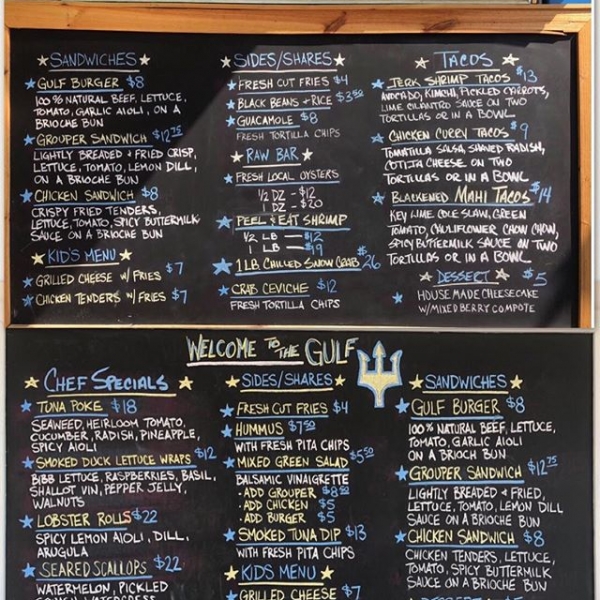 SANDWICHES
GULF BURGER $8
100% NATURAL BEEF, LETTUCE,
TOMATO, GARLIC AIOLI, ON A
BRIOCHE BUN
GROUPER SANDWICH $12.75
LIGHTLY BREADED & FRIED CRISP,
LETTUCE, TOMATO, LEMON DILL,
ON A BRIOCHE BUN
CHICKEN SANDWICH $8
CRISPY FRIED TENDERS,
LETTUCE, TOMATO, SPICY BUTTERMILK
SAUCE ON A BRIOCHE BUN
KID'S MENU
GRILLED CHEESE W/ FRIES $7
CHICKEN TENDERS W/ FRIES $7
SIDES/SHARES
FRESH CUT FRIES $4
BLACK BEANS & RICE $3.50
GUACAMOLE $8
FRESH TORTILLA CHIPS
RAW BAR
FRESH LOCAL OYSTERS
1/2 DZ - $12
1 DZ - $20
PEEL & EAT SHRIMP
1/2 LB — $12
1 LB — $19
1 LB CHILLED SNOW CRAB $26
CRAB CEVICHE $12
FRESH TORTILLA CHIPS
TACOS
JERK SHRIMP TACOS $13
AVOCADO, KIMCHI, PICKLED CARROTS,
LIME CILANTRO SAUCE ON TWO
TORTILLAS OR IN A BOWL
CHICKEN CURRY TACOS $9
TOMATILLA SALSA, SHAVED RADISH,
COTIJA CHEESE ON TWO
TORTILLAS OR IN A BOWL
BLACKENED MAHI TACOS $14
KEY LIME COLE SLAW, GREEN
TOMATO, CAULIFLOWER CHOW CHOW,
SPICY BUTTERMILK SAUCE ON TWO
TORTILLAS OR IN A BOWL
DESSERT $5
HOUSE MADE CHEESECAKE
W/ MIXED BERRY COMPOTE
WELCOME TO THE GULF
CHEF SPECIALS
TUNA POKE $18
SEAWEED, HEIRLOOM TOMATO,
CUCUMBER, RADISH, PINEAPPLE,
SPICY AIOLI
SMOKED DUCK LETTUCE WRAPS $12
BIBB LETTUCE, RASPBERRIES, BASIL,
SHALLOT VIN, PEPPER JELLY,
WALNUTS
LOBSTER ROLLS $22
SPICY LEMON AIOLI, DILL,
ARUGULA
SEARED SCALLOPS $22
WATERMELON, PICKLED
SIDES/SHARES
FRESH CUT FRIES $4
HUMMUS $7.50
WITH FRESH PITA CHIPS
MIXED GREEN SALAD $5.50
BALSAMIC VINAIGRETTE
- ADD GROUPER $8.50
- ADD CHICKEN $5
- ADD BURGER $5
SMOKED TUNA DIP $13
WITH FRESH PITA CHIPS
KIDS MENU
GRILLED CHEESE $7
SANDWICHES
GULF BURGER $8
100% NATURAL BEEF, LETTUCE,
TOMATO, GARLIC AIOLI
ON A BRIOCH BUN
GROUPER SANDWICH $12.75
LIGHTLY BREADED & FRIED,
LETTUCE, TOMATO, LEMON DILL
SAUCE ON A BRIOCHE BUN
CHICKEN SANDWICH $8
CHICKEN TENDERS, LETTUCE,
TOMATO, SPICY BUTTERMILK
SAUCE ON A BRIOCHE BUN